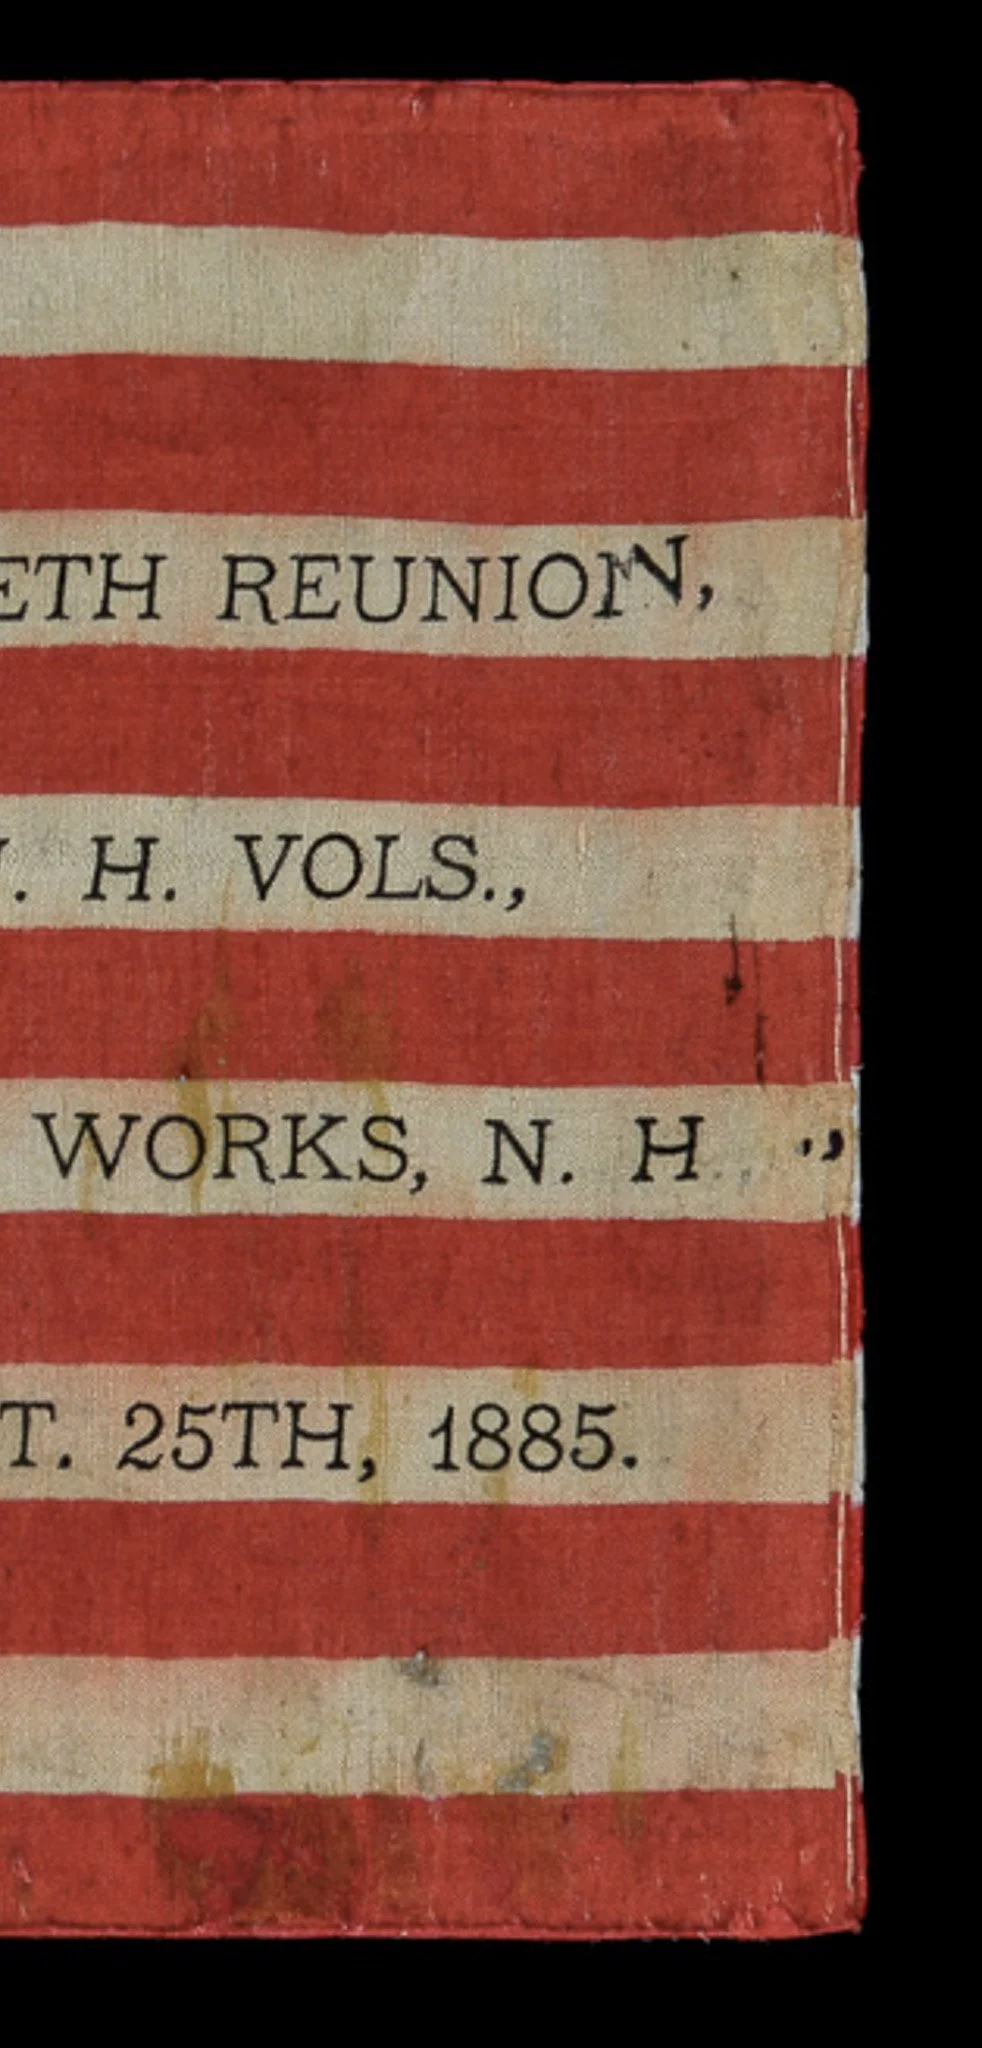 ETH REUNION,
. H. VOLS.,
WORKS, N. H .,
T. 25TH, 1885.